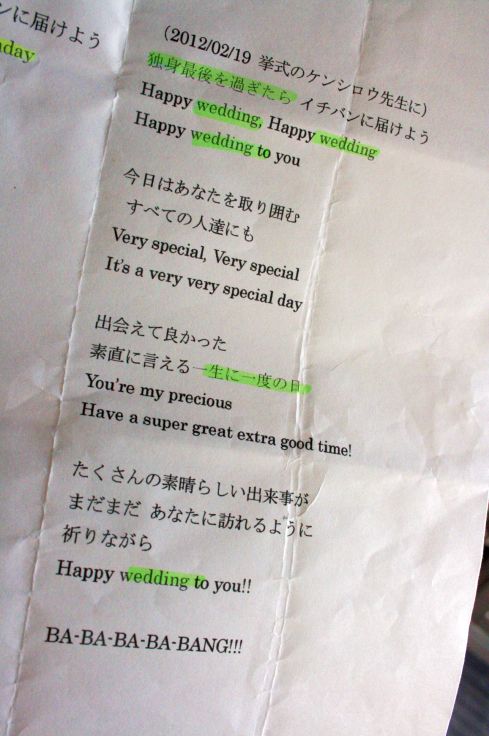 ンに届けよう
nday
（2012/02/19 挙式のケンシロウ先生に）
独身最後を過ぎたら イチバンに届けよう
Happy wedding, Happy wedding
Happy wedding to you
今日はあなたを取り囲む
すべての人達にも
Very special, Very special
It's a very very special day
出会えて良かった
素直に言える一生に一度の日
You're my precious
Have a super great extra good time!
たくさんの素晴らしい出来事が
まだまだ あなたに訪れるように
祈りながら
Happy wedding to you!!
BA-BA-BA-BA-BANG!!!